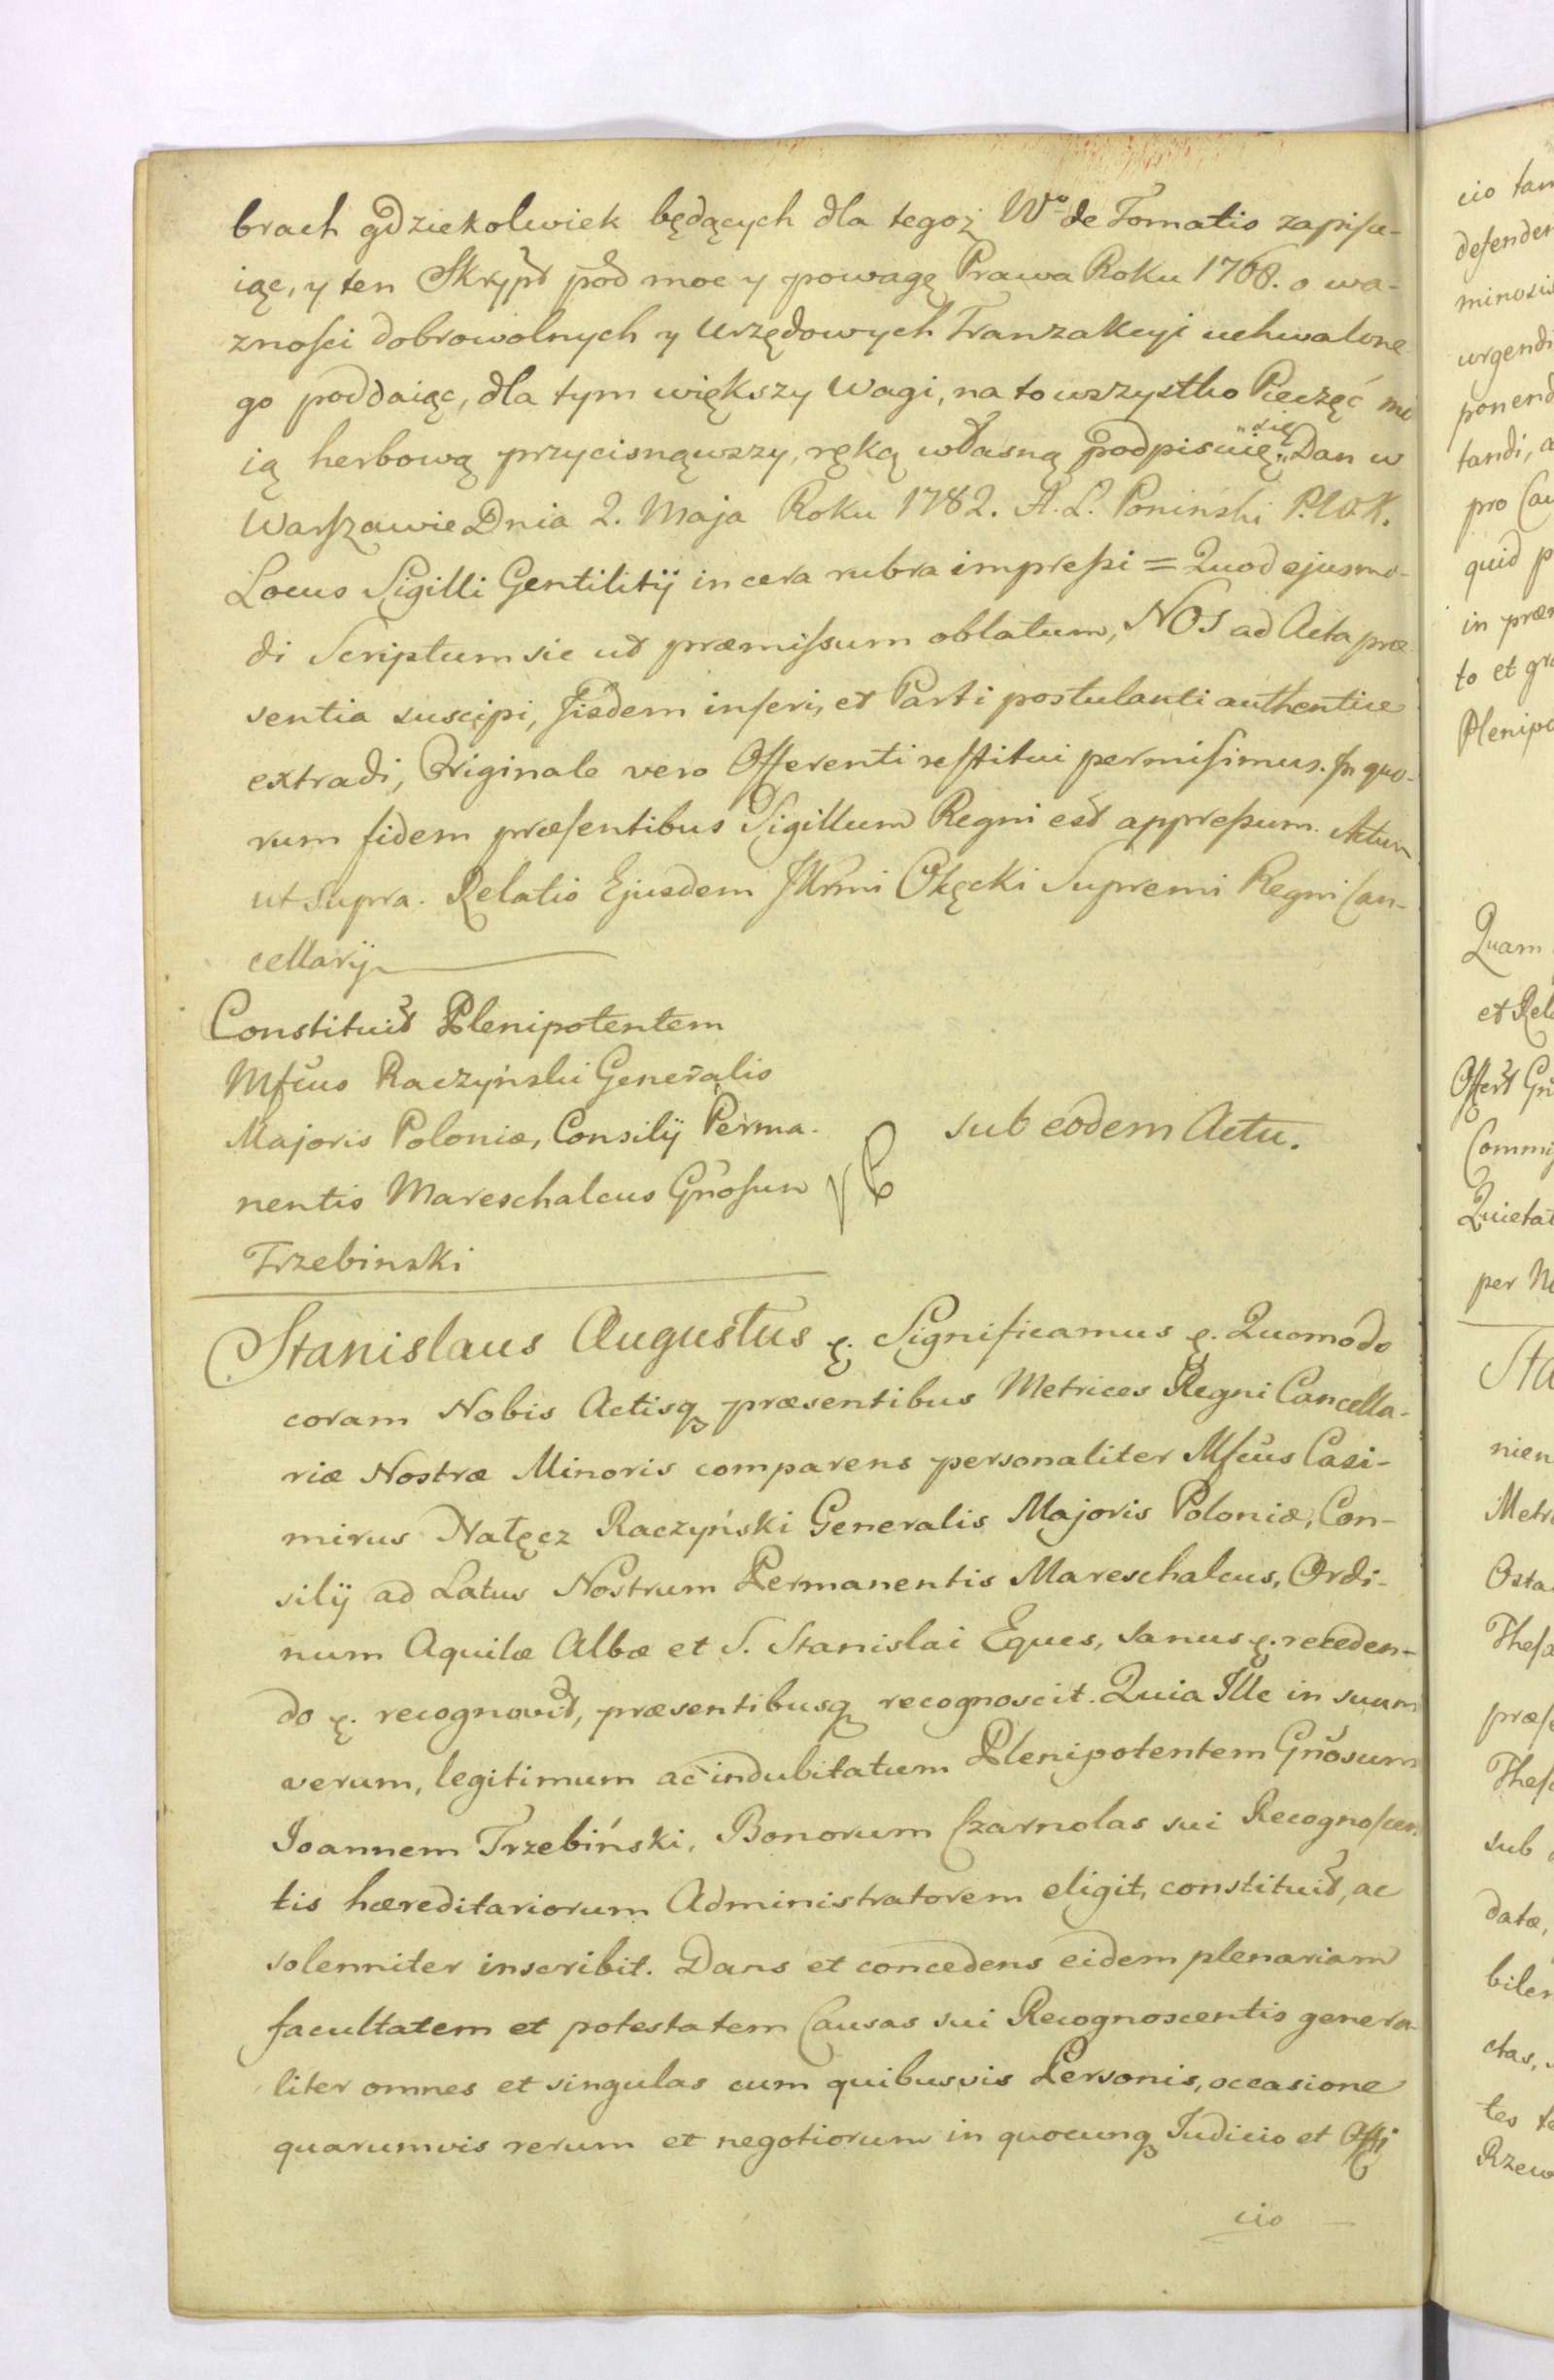 brach gdziekolwiek będących dla tegoż Wo de Tomatis zapisu-
iąc, y ten Skrypt pod moc y powagę Prawa Roku 1768. o wa-
zności dobrowolnych y Urzędowych Tranzakcyi uchwalone
go poddaiąc, dla tym większy Wagi, na to wszystko Pieczęć mo
ią herbową przycisnąwszy, ręką własną podpisuię „się„ Dan w
Warszawie Dnia 2. Maja Roku 1782. A. L. Poninski P.W.K.
Locus Sigilli Gentilitij in cera rubra impressi = Quod ejusmo-
di Scriptum sic ut præmissum oblatum, NOS ad Acta præ
sentia suscipi, Jisdem inseri, et Parti postulanti authentice
extradi, Originale vero Offerenti restitui permisimus. In quo-
rum fidem præsentibus Sigillum Regni est appressum. Actum
ut supra. Relatio Ejusdem Jllrmi Okęcki Supremi Regni Can-
cellarij
Constituit Plenipotentem
Mfcus Raczyński Generalis
Majoris Poloniæ, Consilij Perma-
nentis Mareschalcus Gnosum
Trzebinski
sub eodem Actu.
Stanislaus Augustus &. Significamus &. Quomodo
coram Nobis Actisq præsentibus Metrices Regni Cancella-
riæ Nostræ Minoris comparens personaliter Mfcus Casi-
mirus Nałęcz Raczyński Generalis Majoris Poloniæ, Con-
silij ad Latus Nostrum Permanentis Mareschalcus, Ordi-
num Aquilæ Albæ et S. Stanislai Eques, sanus &. receden-
do &. recognovit, præsentibusq recognoscit. Quia Ille in suum
verum, legitimum ac indubitatum Plenipotentem Gnosum
Joannem Trzebiński, Bonorum Czarnolas sui Recognoscen-
tis hæreditariorum Administratorem eligit, constituit, ac
solenniter inscribit. Dans et concedens eidem plenariam
facultatem et potestatem Causas sui Recognoscentis genera-
liter omnes et singulas cum quibusvis Personis, occasione
quarumvis rerum et negotiorum in quocunq Judicio et Offi
cio
cio tan
defenden
minosis
urgendi
ponend
tandi, a
pro Cau
quid p
in præ
to et gra
Plenipo
Quam
et Rel
Offert Gn
Commi
Quietat
per M
Sta
nien
Metr
Osta
Thesa
præs
Thes
sub
datæ,
biler
ctas,
tes
Rzew